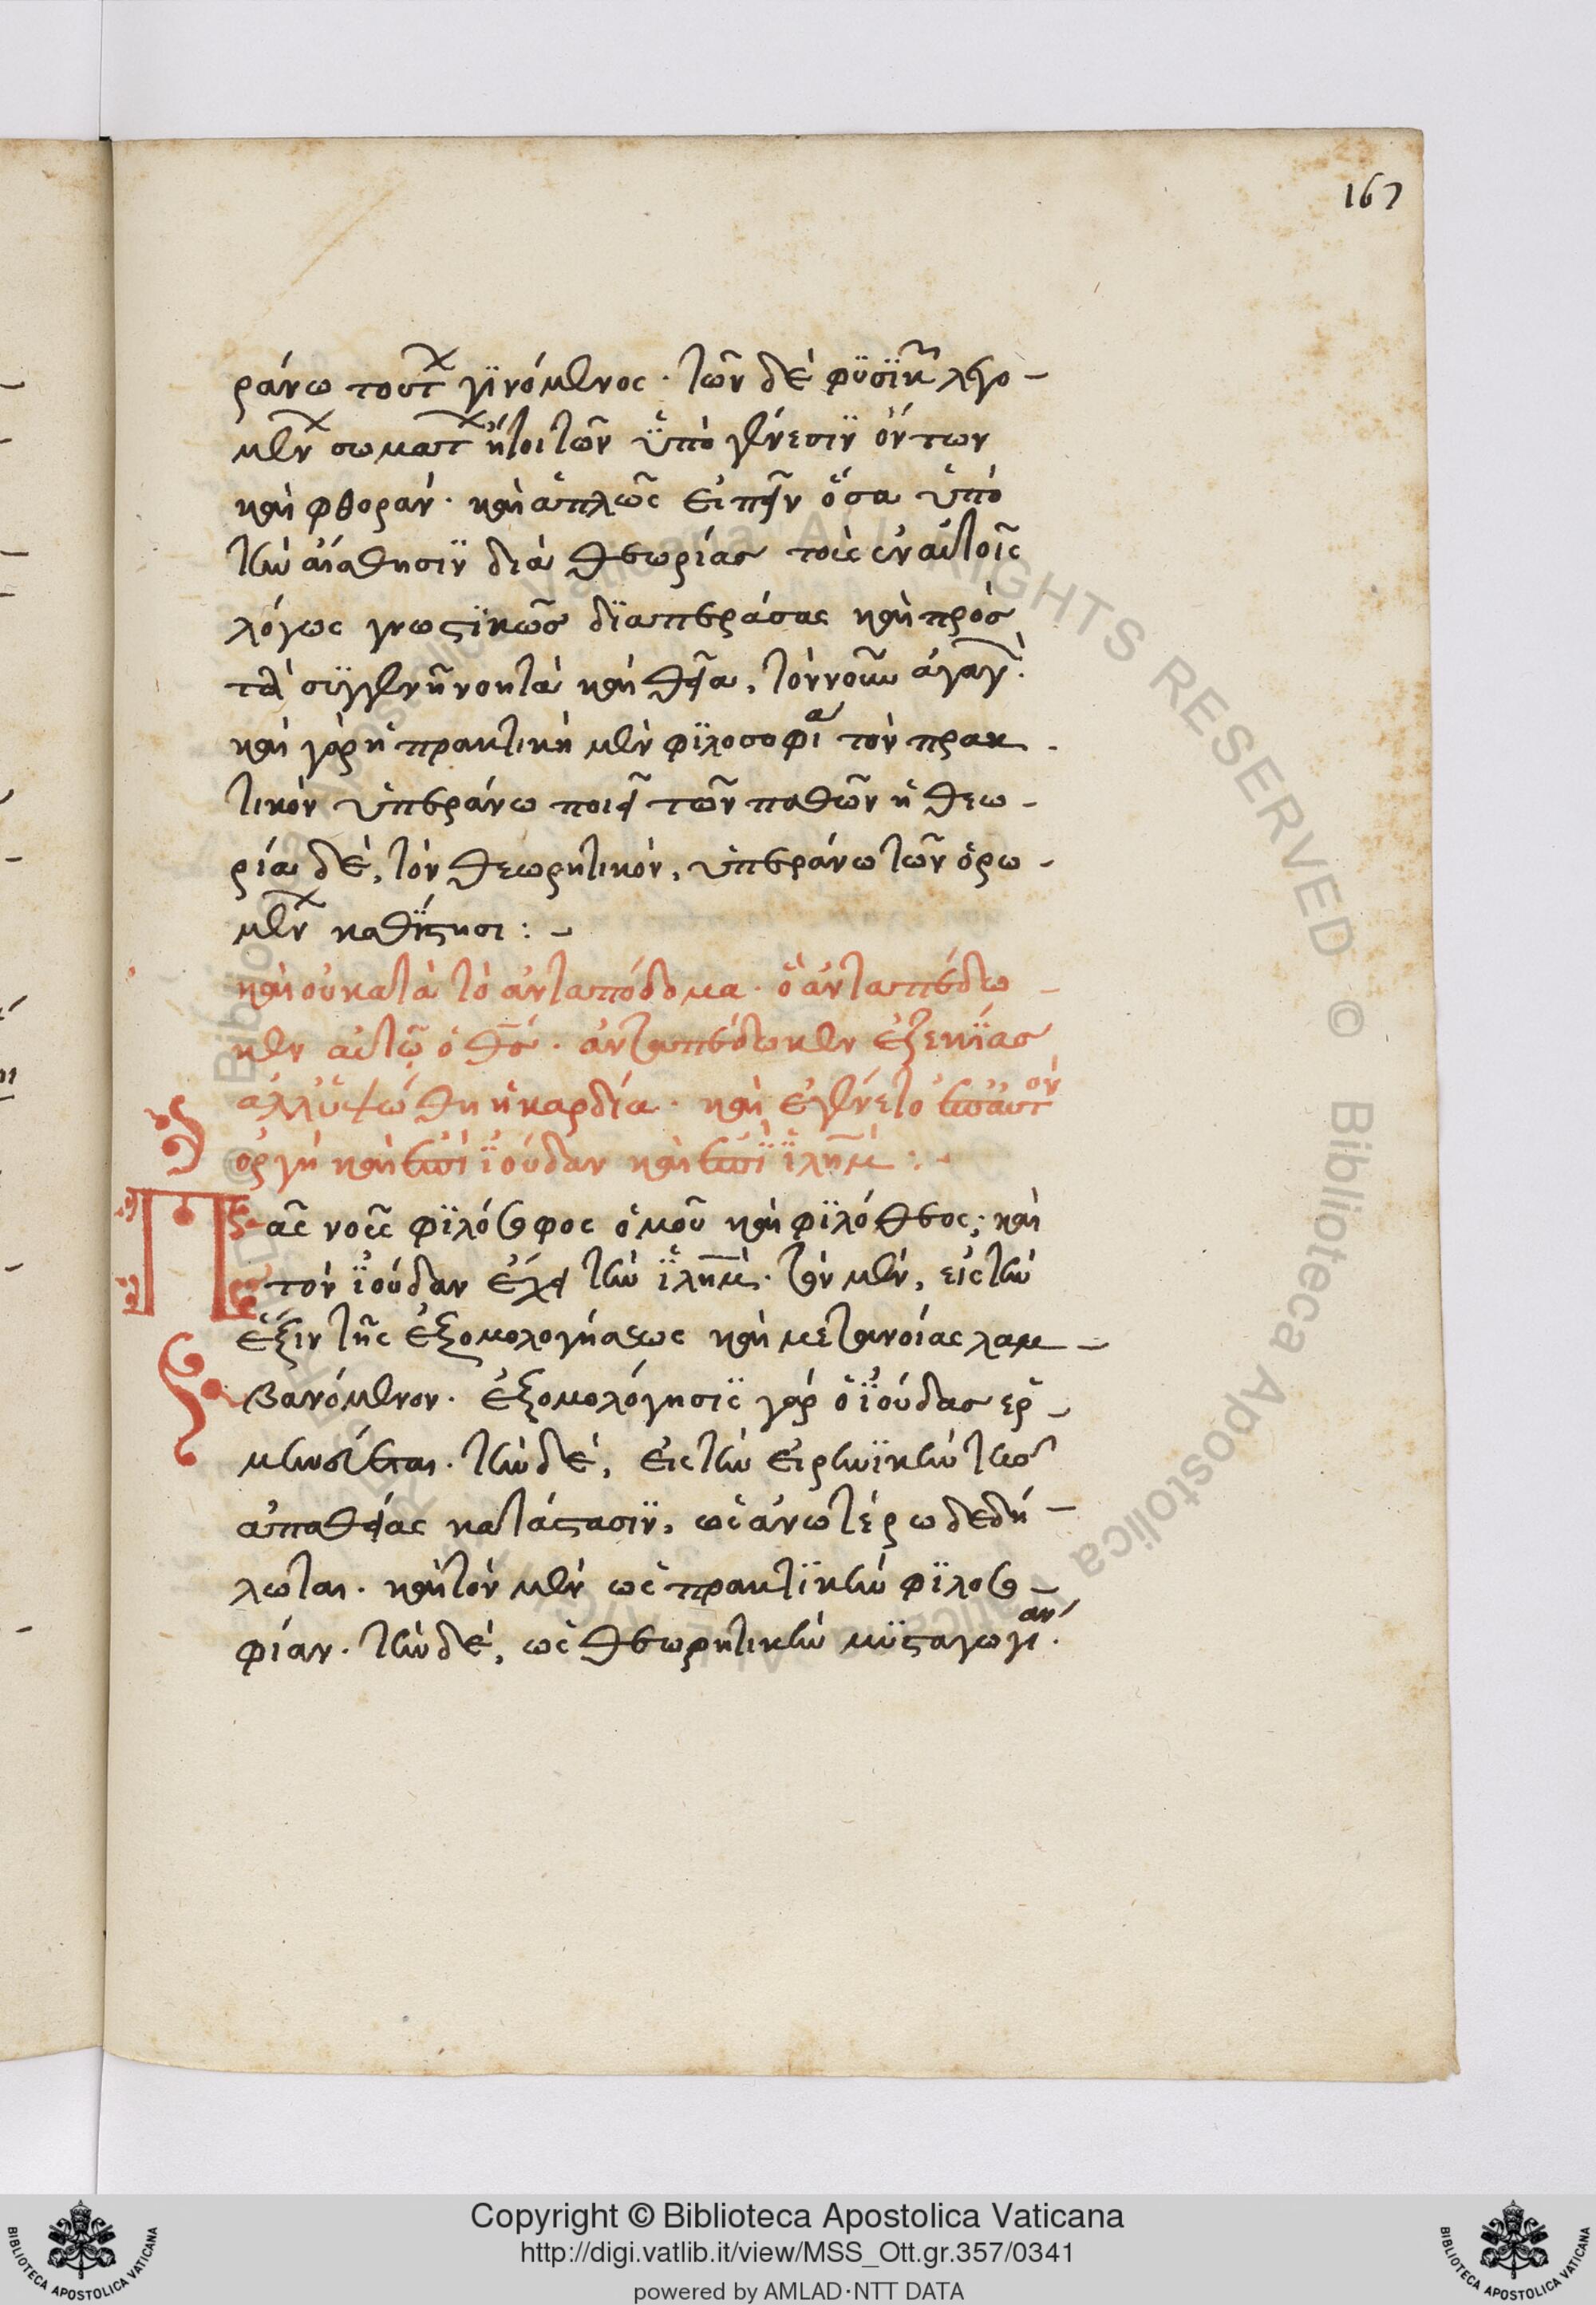 167
ράνω τούτων γϊνόμενος· τῶν δὲ φϋσϊκῶν λεγο-
μένων σωμάτων ἤτοι τῶν ὑπὸ γένεσϊν ὄντων
καὶ φθοράν· καὶ ἁπλῶς εἰπεῖν ὅσα ὑπὸ
τὴν αἴσθησϊν διὰ θεωρίας τοὺς ἐν αὐτοῖς
λόγους γνωστϊκῶς δϊαπεράσας καὶ πρὸς
τὰ συγγενῆ νοητὰ καὶ θεῖα, τὸν νοῦν ἀγαγὼν.
καὶ γὰρ ἡ πρακτικὴ μὲν φϊλοσοφία τὸν πρακ-
τικὸν ὑπεράνω ποιεῖ τῶν παθῶν ἡ θεω-
ρία δὲ, τὸν θεωρητικὸν, ὑπεράνω τῶν ὁρω-
μένων καθΐστησι:-
καὶ οὐ κατὰ τὸ ἀνταπόδομα· ὃ ἀνταπέδω-
κεν αὐτῷ ὁ θς· ἀνταπέδωκεν ἐζεκΐας
ἀλλ' ὑψώθη ἡ καρδία· καὶ ἐγένετο ἐπ' αὐτὸν
ὀργὴ καὶ ἐπὶ ἰούδαν καὶ ἐπὶ ἰλημ:-
Πᾶς νοῦς φϊλόσοφος ὁμοῦ καὶ φϊλόθεος· καὶ
τὸν ἰούδαν ἔχει τὴν ἰλημ· τὸν μὲν, εἰς τὴν
ἕξιν τῆς ἐξομολογήσεως καὶ μετανοίας λαμ-
βανόμενον· ἐξομολόγησϊς γὰρ ὁ ἰούδας ἑρ-
μηνεύεται· τὴν δὲ, εἰς τὴν εἰρηνϊκὴν τῆς
ἀπαθείας κατάστασϊν, ὡς ἀνωτέρω δεδή-
λωται· καὶ τὸν μὲν ὡς πρακτϊκὴν φϊλοσο-
φίαν· τὴν δὲ, ὡς θεωρητικὴν μϋσταγωγίαν.
Copyright © Biblioteca Apostolica Vaticana
http://digi.vatlib.it/view/MSS_Ott.gr.357/0341
powered by AMLAD·NTT DATA